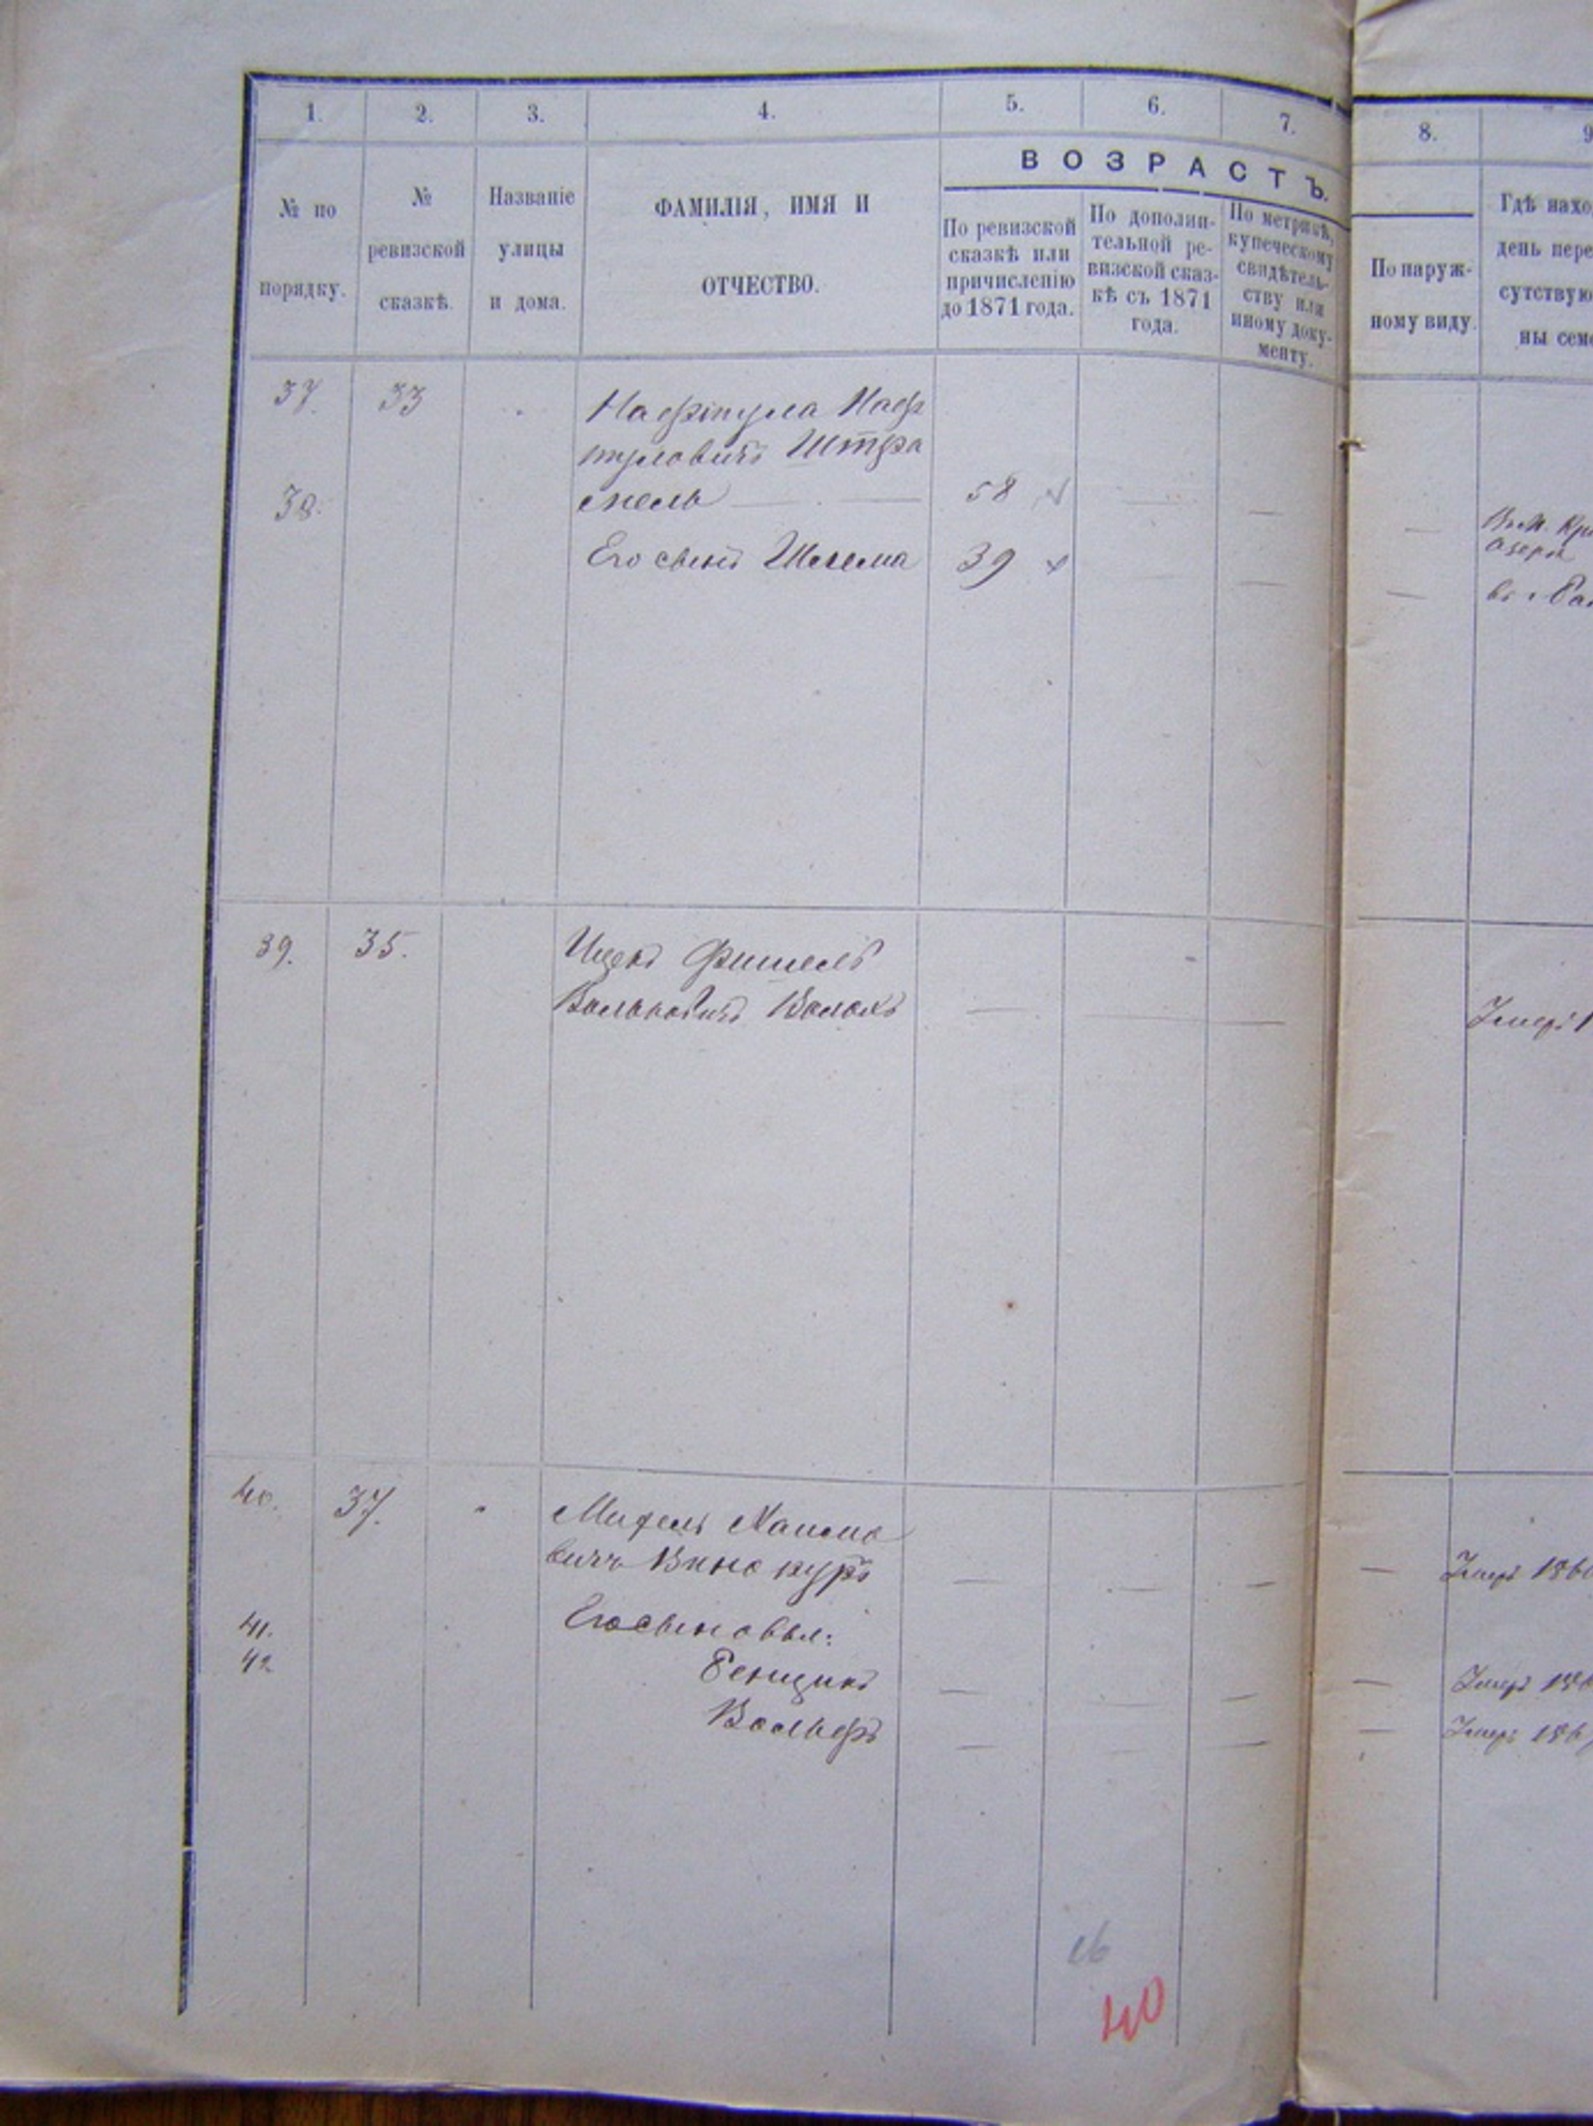 1. 2. 3. 4. 5. 6. 7. 8. 9
ВОЗРАСТЪ.
№ по
порядку.
№
ревизской
сказкѣ.
Названіе
улицы
и дома.
ФАМИЛІЯ, ИМЯ И
ОТЧЕСТВО.
По ревизской
сказкѣ или
причисленію
до 1871 года.
По дополни-
тельной ре-
визской сказ-
кѣ съ 1871
года.
По метрикѣ,
купеческому
свидѣтель-
ству или
иному доку-
менту.
По наруж-
ному виду.
Гдѣ нахо
день пере
сутствую
ны семе
37. 33 Нафтула Наф
туловичъ Штра
38. мель 58
Его сынъ Шлема 39
39. 35. Ицекъ Фишель
Вольковичъ Волохъ
Умеръ 1
40. 37. Хаимо
вичъ Винокуръ Умеръ 186
41. Его сыновья:
42 Бенционъ Умеръ 18
Вольфъ Умеръ 186
40